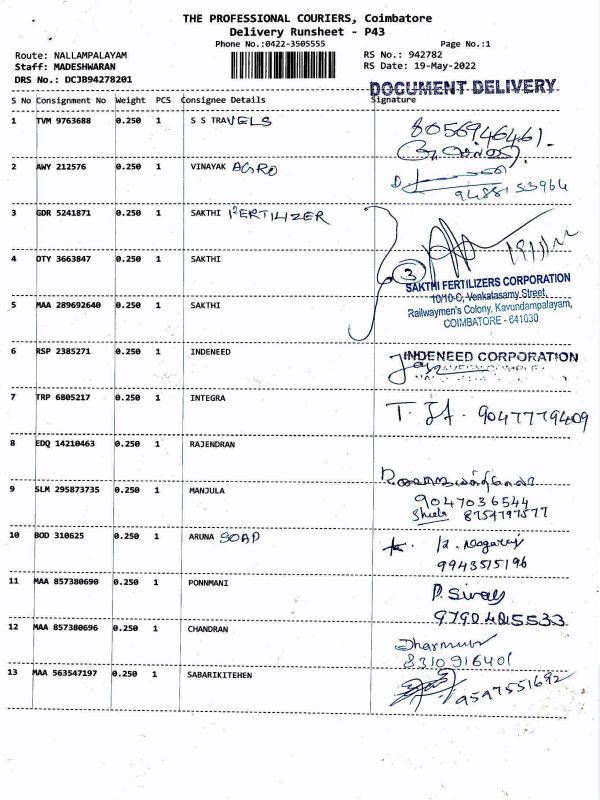 THE PROFESSIONAL COURIERS, Coimbatore
Delivery Runsheet - P43
Phone No.:0422-3505555 Page No.:1
Route: NALLAMPALAYAM RS No.: 942782
Staff: MADESHWARAN RS Date: 19-May-2022
DRS No.: DCJB94278201
DOCUMENT DELIVERY
S No Consignment No Weight PCS Consignee Details Signature
1 TVM 9763688 0.250 1 S S TRAVELS 8056946461.
2 AWY 212576 0.250 1 VINAYAK AGRO
9488153964
3 GDR 5241871 0.250 1 SAKTHI FERTILIZER
4 OTY 3663847 0.250 1 SAKTHI
3
SAKTHI FERTILIZERS CORPORATION
10/10-C, Venkatasamy Street,
5 MAA 289692640 0.250 1 SAKTHI
Railwaymen's Colony, Kavundampalayam,
COIMBATORE - 641030
6 RSP 2385271 0.250 1 INDENEED INDENEED CORPORATION
7 TRP 6805217 0.250 1 INTEGRA 9047779409
8 EDQ 14210463 0.250 1 RAJENDRAN
9 SLM 295873735 0.250 1 MANJULA
9047036544
Sheela 8754797577
10 BOD 310625 0.250 1 ARUNA SOAP K. Nagaraj
9943515196
11 MAA 857380690 0.250 1 PONNMANI P. Sivaj
9790405533
12 MAA 857380696 0.250 1 CHANDRAN Dharmu
8310916401
13 MAA 563547197 0.250 1 SABARIKITEHEN 9597551692